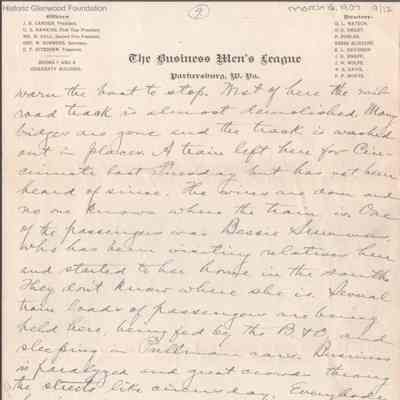 Historic Glenwood Foundation
(2)
March 16, 1907 9/12
Officers
J. S. CAMDEN, President
C. S. HAWKINS, First Vice President
WM. H. WOLF, Second Vice President
GEO. W. BOWERS, Secretary
C. T. HITESHEW, Treasurer
ROOMS 7 AND 8
CITIZENS BUILDING.
The Business Men's League
Parkersburg, W. Va.
Directors
G. L. WATSON,
S. L. DAVIDSON
W. H. WOLFE,
W. A. DAVIS,
warn the boat to stop. West of here the rail
road track is almost demolished. Many
bridges are gone and the track is washed
out in places. A train left here for Cin-
cinnati last Thursday but has not been
heard of since. The wires are down and
no one knows where the train is. One
of the passengers was Bessie
who has been visiting relatives here
and started to her home in the south
They don't know where she is. Several
train loads of passengers are being
held here, being fed by the B & O, and
sleeping in Pullman cars. Business
is paralyzed and great crowds throng
the streets like circus day. Everybody